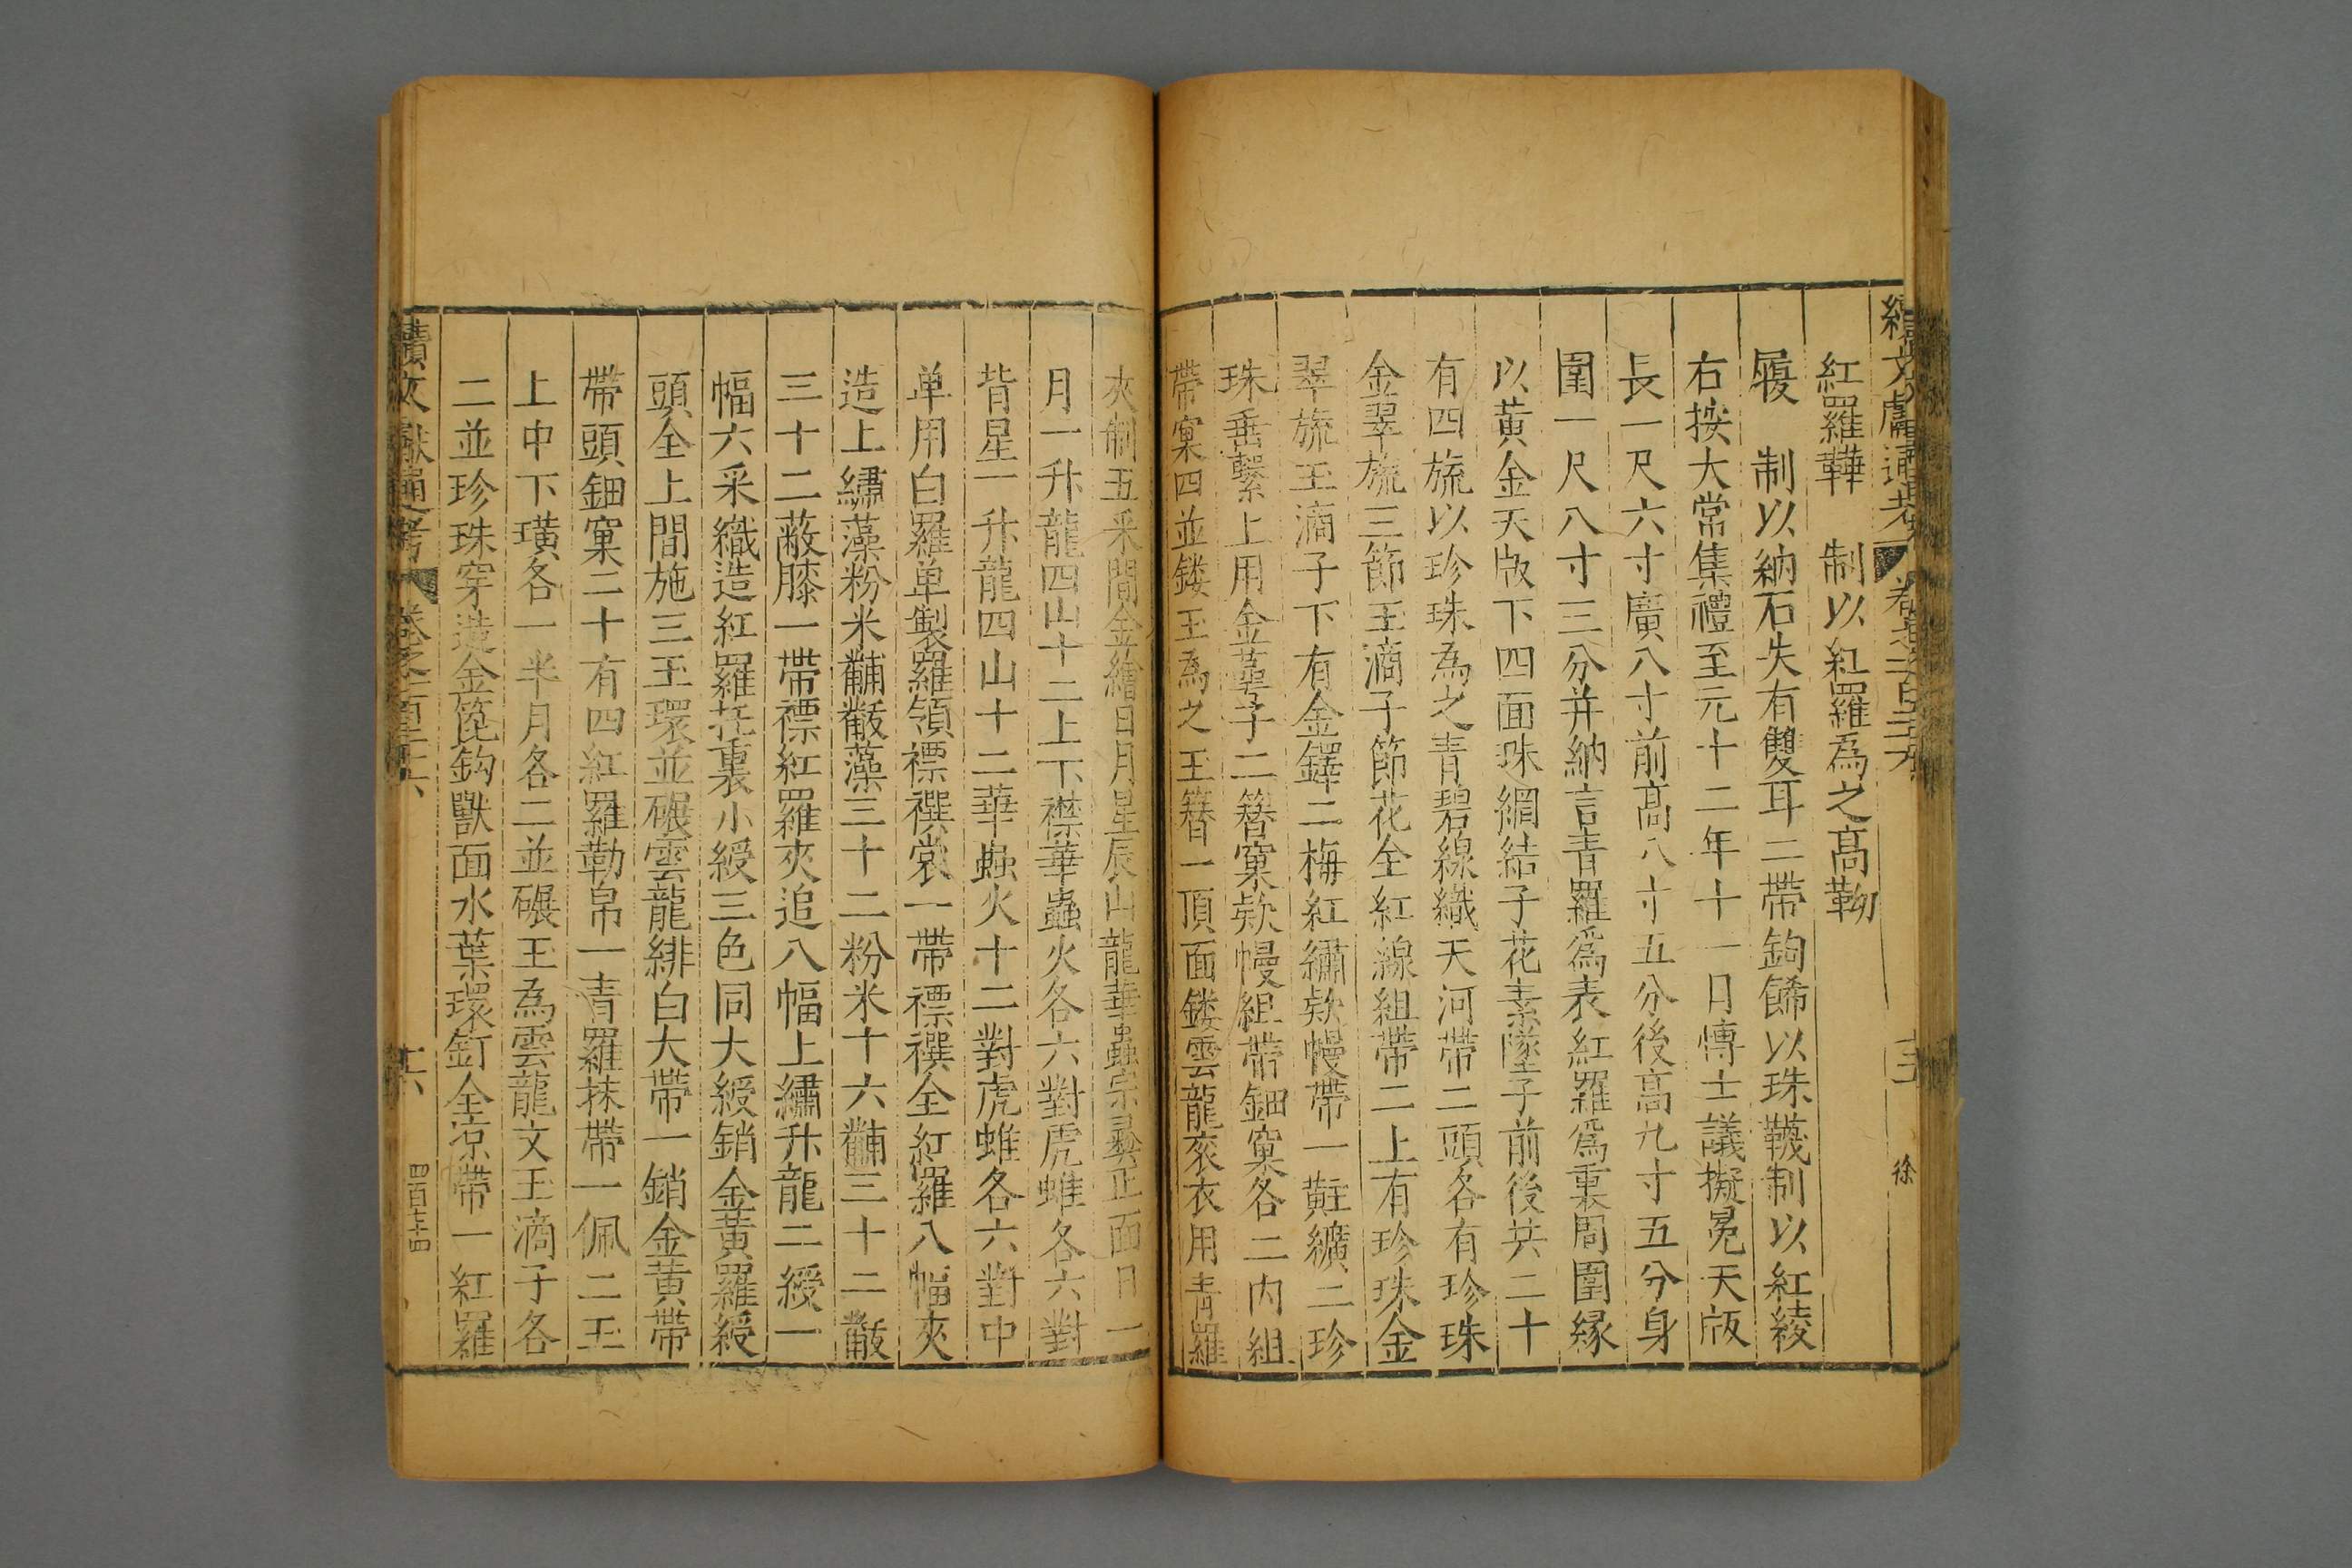 續文獻通考 卷之一百二十六 徐
紅羅鞾 制以紅羅為之高靿
履 制以納石失有雙耳二帶鉤餙以珠韈制以紅綾
右按大常集禮至元十二年十一月博士議擬冕天版
長一尺六寸廣八寸前高八寸五分後高九寸五分身
圍一尺八寸三分并納言青羅爲表紅羅爲裏周圍緣
以黃金天版下四面珠網結子花素墜子前後共二十
有四旒以珍珠為之青碧線織天河帶二頭各有珍珠
金翠旒三節玉滴子節花全紅線組帶二上有珍珠金
翠旒玉滴子下有金鐸二梅紅繡欵幔帶一黈纊二珍
珠垂繫上用金蕚子二簪窠欵幔組帶鈿窠各二內組
帶窠四並鏤玉為之玉簪一頂面鏤雲龍衮衣用青羅
夾制五采間金繪日月星辰山龍華蟲宗彝正面日一
月一升龍四山十二上下襟華蟲火各六對虎蜼各六對
背星一升龍四山十二華蟲火十二對虎蜼各六對中
单用白羅单製羅領褾襈裳一帶褾襈全紅羅八幅夾
造上繡藻粉米黼黻藻三十二粉米十六黼三十二黻
三十二蔽膝一帶褾紅羅夾造八幅上繡升龍二綬一
幅六采織造紅羅托裏小綬三色同大綬銷金黃羅綬
頭全上間施三玉環並碾雲龍緋白大帶一銷金黃帶
帶頭鈿窠二十有四紅羅勒帛一青羅抹帶一佩二玉
上中下璜各一半月各二並碾玉為雲龍文玉滴子各
二並珍珠穿造金篦鈎獸面水葉環釘全凉帶一紅羅
續文獻通考 卷之一百二十六 十六 四百七十四